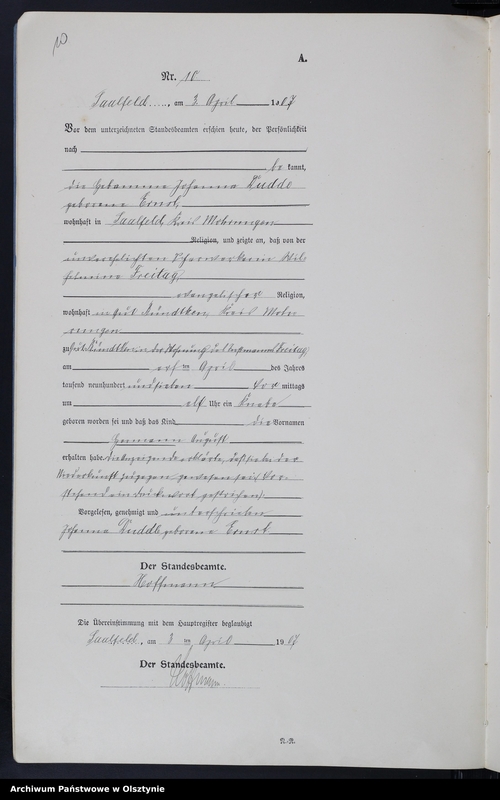 10
A.
Nr. 10
Saalfeld, am 3 April 1907
Vor dem unterzeichneten Standesbeamten erschien heute, der Persönlichkeit
nach
be kannt,
die Hebamme Johanna Kudde
geborene Ernst
wohnhaft in Saalfeld, Kreis Mohrungen
Religion, und zeigte an, daß von der
unverehelichten Wil
helmine Freitag,
evangelischer Religion,
wohnhaft in Gut Kündtken, Kreis Moh
rungen
zu Gut Kündtken in der Wohnung Freitag,
am ersten April des Jahres
tausend neunhundert und sieben Vor mittags
um elf Uhr ein Knabe
geboren worden sei und daß das Kind die Vornamen
Hermann August
erhalten habe. Die Anzeigende erklärte, daß sie bei der
Niederkunft zugegen gewesen sei. Vor
stehend ein Druckwort gestrichen.
Vorgelesen, genehmigt und unterschrieben
Johanna Kudde geborene Ernst
Der Standesbeamte.
Hoffmann
Die Übereinstimmung mit dem Hauptregister beglaubigt
Saalfeld, am 3 ten April 1907
Der Standesbeamte.
Hoffmann.
N.-R.
Archiwum Państwowe w Olsztynie